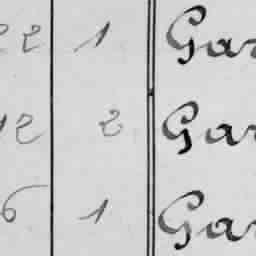 22 1 Gar
12 2 Gar
6 1 Gar